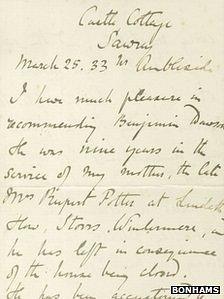 Castle Cottage
Sawrey
March 25. 33 Nr Ambleside
I have much pleasure in
recommending Benjamin Dawson
He was nine years in the
service of my mother, the late
Mrs Rupert Potter at Lindeth
How, Storrs, Windermere, and
he has left in consequence
of the house being closed.
He has been accustomed
BONHAMS